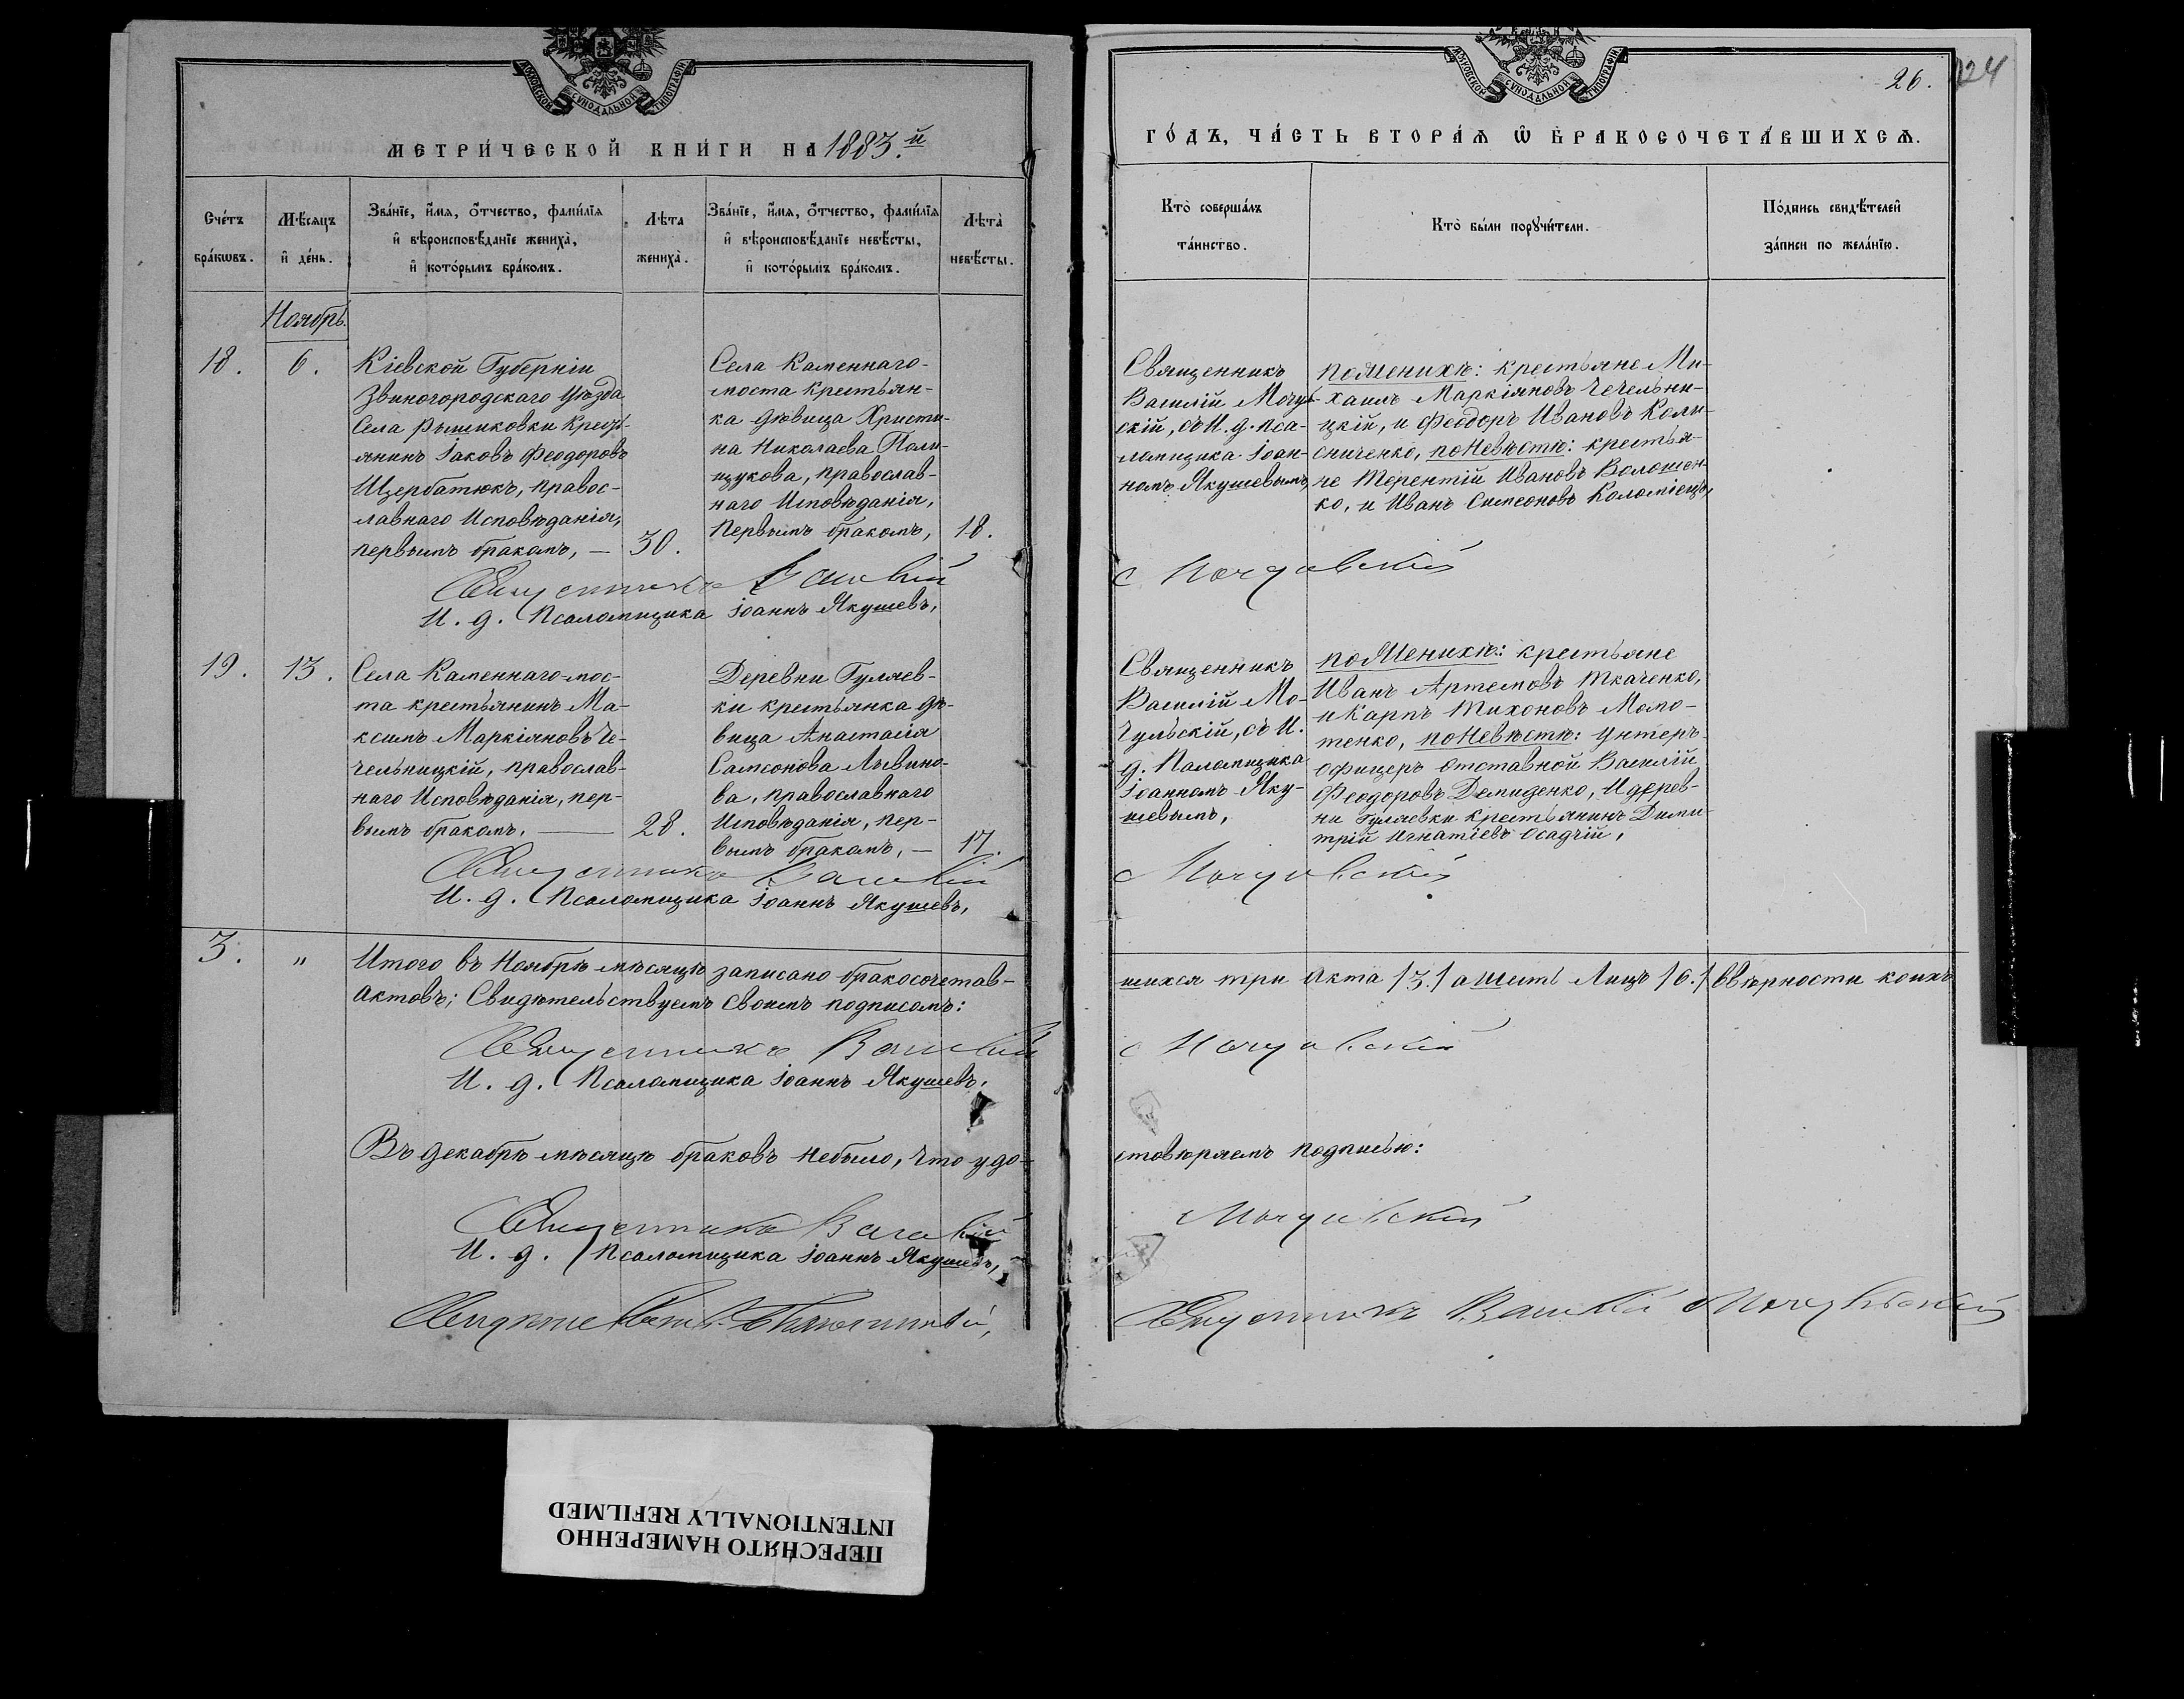 МОСКОВСКОЙ СѴНОДАЛЬНОЙ ТИПОГРАФІИ
МЕТРИ́ЧЕСКОЙ КНИ́ГИ НА 1883.й
Сче́тъ бра́кѡвъ.
Мѣ́сяцъ и҆ де́нь.
Зва́нїе, и҆́мя, ѻ҆́тчество, фами́лїя
и҆ вѣроисповѣ́данїе жениха̀,
и҆ кото́рымъ бра́комъ.
Лѣ́та жениха̀.
Зва́нїе, и҆́мя, ѻ҆́тчество, фами́лїя
и҆ вѣроисповѣ́данїе невѣ́сты,
и҆ кото́рымъ бра́комъ.
Лѣта̀ невѣ́сты.
Ноябрь.
18.
6.
Кіевской Губерніи
Звиногородскаго Уѣзда
Села Рыжиковки Кресть-
янинъ Іаковъ Феодоровъ
Щербатюкъ, правос-
лавнаго Исповѣданія,
первымъ бракомъ, —
30.
Села Каменнаго-
моста крестьян-
ка дѣвица Христи-
на Николаева Поли-
щукова, православ-
наго Исповѣданія,
Первымъ бракомъ,
18.
Священникъ Василій
И. д. Псаломщика Іоаннъ Якушевъ,
19.
13.
Села Каменнаго-мос-
та крестьянинъ Ма-
ксимъ Маркіяновъ Че-
чельницкій, православ-
наго Исповѣданія, пер-
вымъ бракомъ. —
28.
Деревни Гуляев-
ки крестьянка дѣ-
вица Анастасія
Самсонова Лывино-
ва, православнаго
Исповѣданія, пер-
вымъ бракомъ, —
17.
Священникъ Василій
И. д. Псаломщика Іоаннъ Якушевъ,
3.
"
Итого въ Ноябрѣ мѣсяцѣ записано бракосочетав-
актовъ; Свидѣтельствуемъ своимъ подписомъ:
Священникъ Василій
И. д. Псаломщика Іоаннъ Якушевъ.
Въ декабрѣ мѣсяцѣ браковъ небыло, что удо-
Священникъ Василій
И. д. Псаломщика Іоаннъ Якушевъ,
МОСКОВСКОЙ СѴНОДАЛЬНОЙ ТИПОГРАФІИ
26.
124
ГО́ДЪ, ЧА́СТЬ ВТОРА́Я Ѡ҆ БРАКОСОЧЕТА́ВШИХСЯ.
Кто̀ соверша́лъ
та́инство.
Кто̀ бы́ли порꙋчи́тели.
По́дпись свидѣ́телей
за́писи по жела́нїю.
Священникъ
Василій Мочуль-
скій, съ И. д. Пса-
ломщика Іоан-
номъ Якушевымъ,
поЖенихѣ: крестьяне Ми-
хаилъ Маркіяновъ Чечельни-
цкій, и Феодоръ Ивановъ Коли-
сниченко, поНевѣстѣ: крестья-
не Терентій Ивановъ Волошен-
ко, и Иванъ Симеоновъ Коломіецъ,
Мочульскій
Священникъ
Василій Мо-
чульскій, съ И.
д. Паломщика
Іоанномъ Яку-
шевымъ,
поЖенихѣ: крестьяне
Иванъ Артемовъ Ткаченко,
и Карпъ Тихоновъ Момо-
тенко, поНевѣстѣ: унтеръ-
Офицеръ отставной Василій
Феодоровъ Демиденко, И дерев-
ни Гуляевки крестьянинъ Дими-
трій Игнатіевъ Осадчій,
Мочульскій
шихся три Акта /3./ а шесть Лицъ /6./ Ввѣрности коихъ
Мочульскій
стовѣряемъ подписью:
Мочульскій
Священникъ Василій Мочульскій
ПЕРЕСНЯТО НАМЕРЕННО
INTENTIONALLY REFILMED